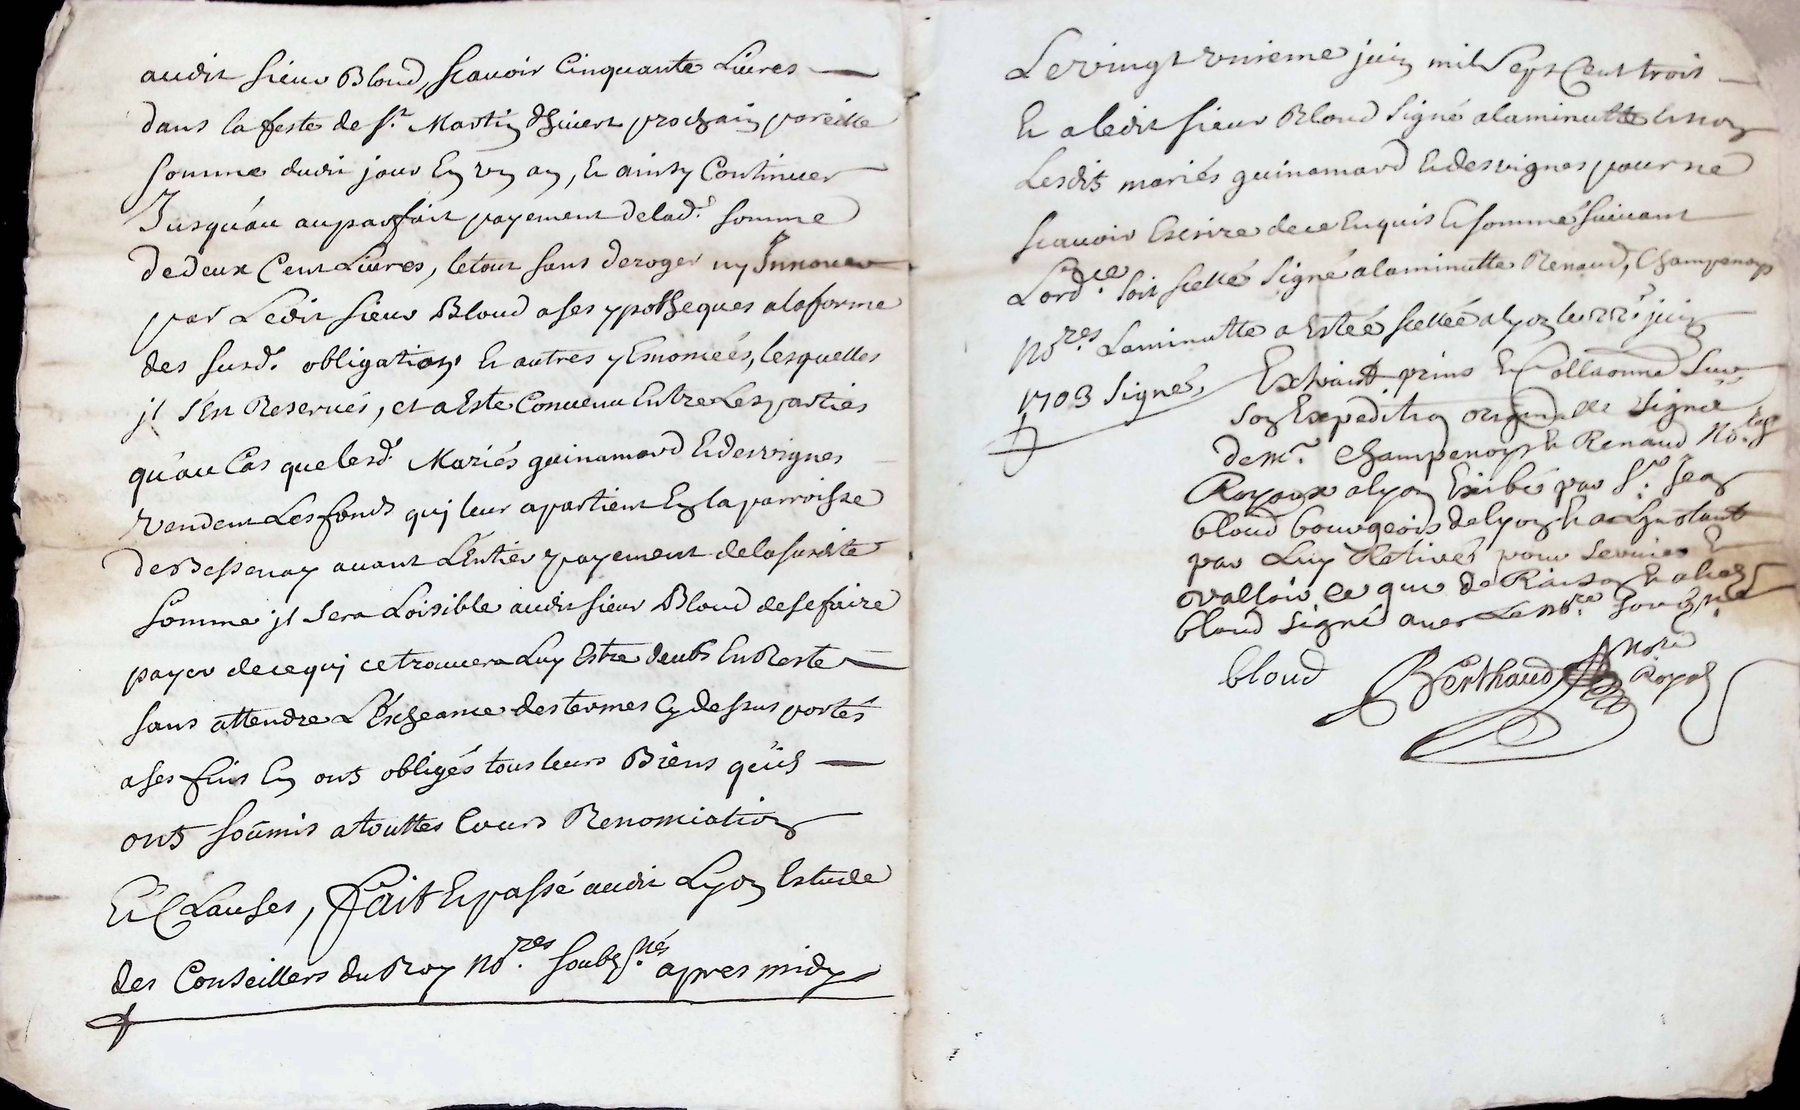 audit sieur Bloud, scauoir Cinquante Liures
dans la feste de st. Martin dhiuert prochain pareille
somme dudit jour En vn an, Et ainsy Continuer
Jusqu'au auparfait payement delad.e somme
de deux Cent Liures, letout sans deroger ny Innouer
par Ledit sieur Bloud a ses ypotheques alaforme
des susd. obligations Et autres y Enoncées, lesquelles
jl s'En Reserués, et a Este Conuenu Entre Les parties
qu'au Cas que lesd. Mariés guinamard Edesvignes
vendent Les fonds quj leur apartient En la parroisse
de Bessenay auant L'Entier payement de la susdite
somme jl sera Loisible audit sieur Bloud de se faire
payer de ce quj ce trouuera Luy Estre deubt En Reste
sans attendre L'Escheance des termes Cy dessus portés
a ses fins En ont obligés tous leurs Biens qu'ils
ont soûmis a touttes Cours Renonciation
Et Clauses, fait Et passé audit Lyon Estude
des Conseillers du Roy No.res soubs.nés apres midy
Le vingt vnieme juin mil sept Cent trois
Et a ledit sieur Bloud signé alaminutte Et non
Lesdits mariés guinamard Edesvignes pour ne
scauoir Escrire de ce Enquis Et sommé suiuant
Lord.ce soit scellé signé alaminutte Renaud, Champenoys
No.res Laminutte a Estéé scellée a lyon le 22.e juin
1703 signés,
Extrait prins Et Collationné sur
son Expedition originalle signée
de m.r Champenoys Et Renaud No.res
Royaux a lyon Exibé par s.r Jean
bloud bourgeois de lyon Et a L'instant
par Luy Retirés pour seruir Et
valloir ce que de Raison Et a led.
bloud signé auec Le No.re soub.né
bloud Berthaud No.re
Royal